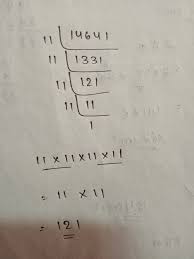 11 | 14641
11 | 1331
11 | 121
11 | 11
1
11 × 11 × 11 × 11
= 11 × 11
= 121